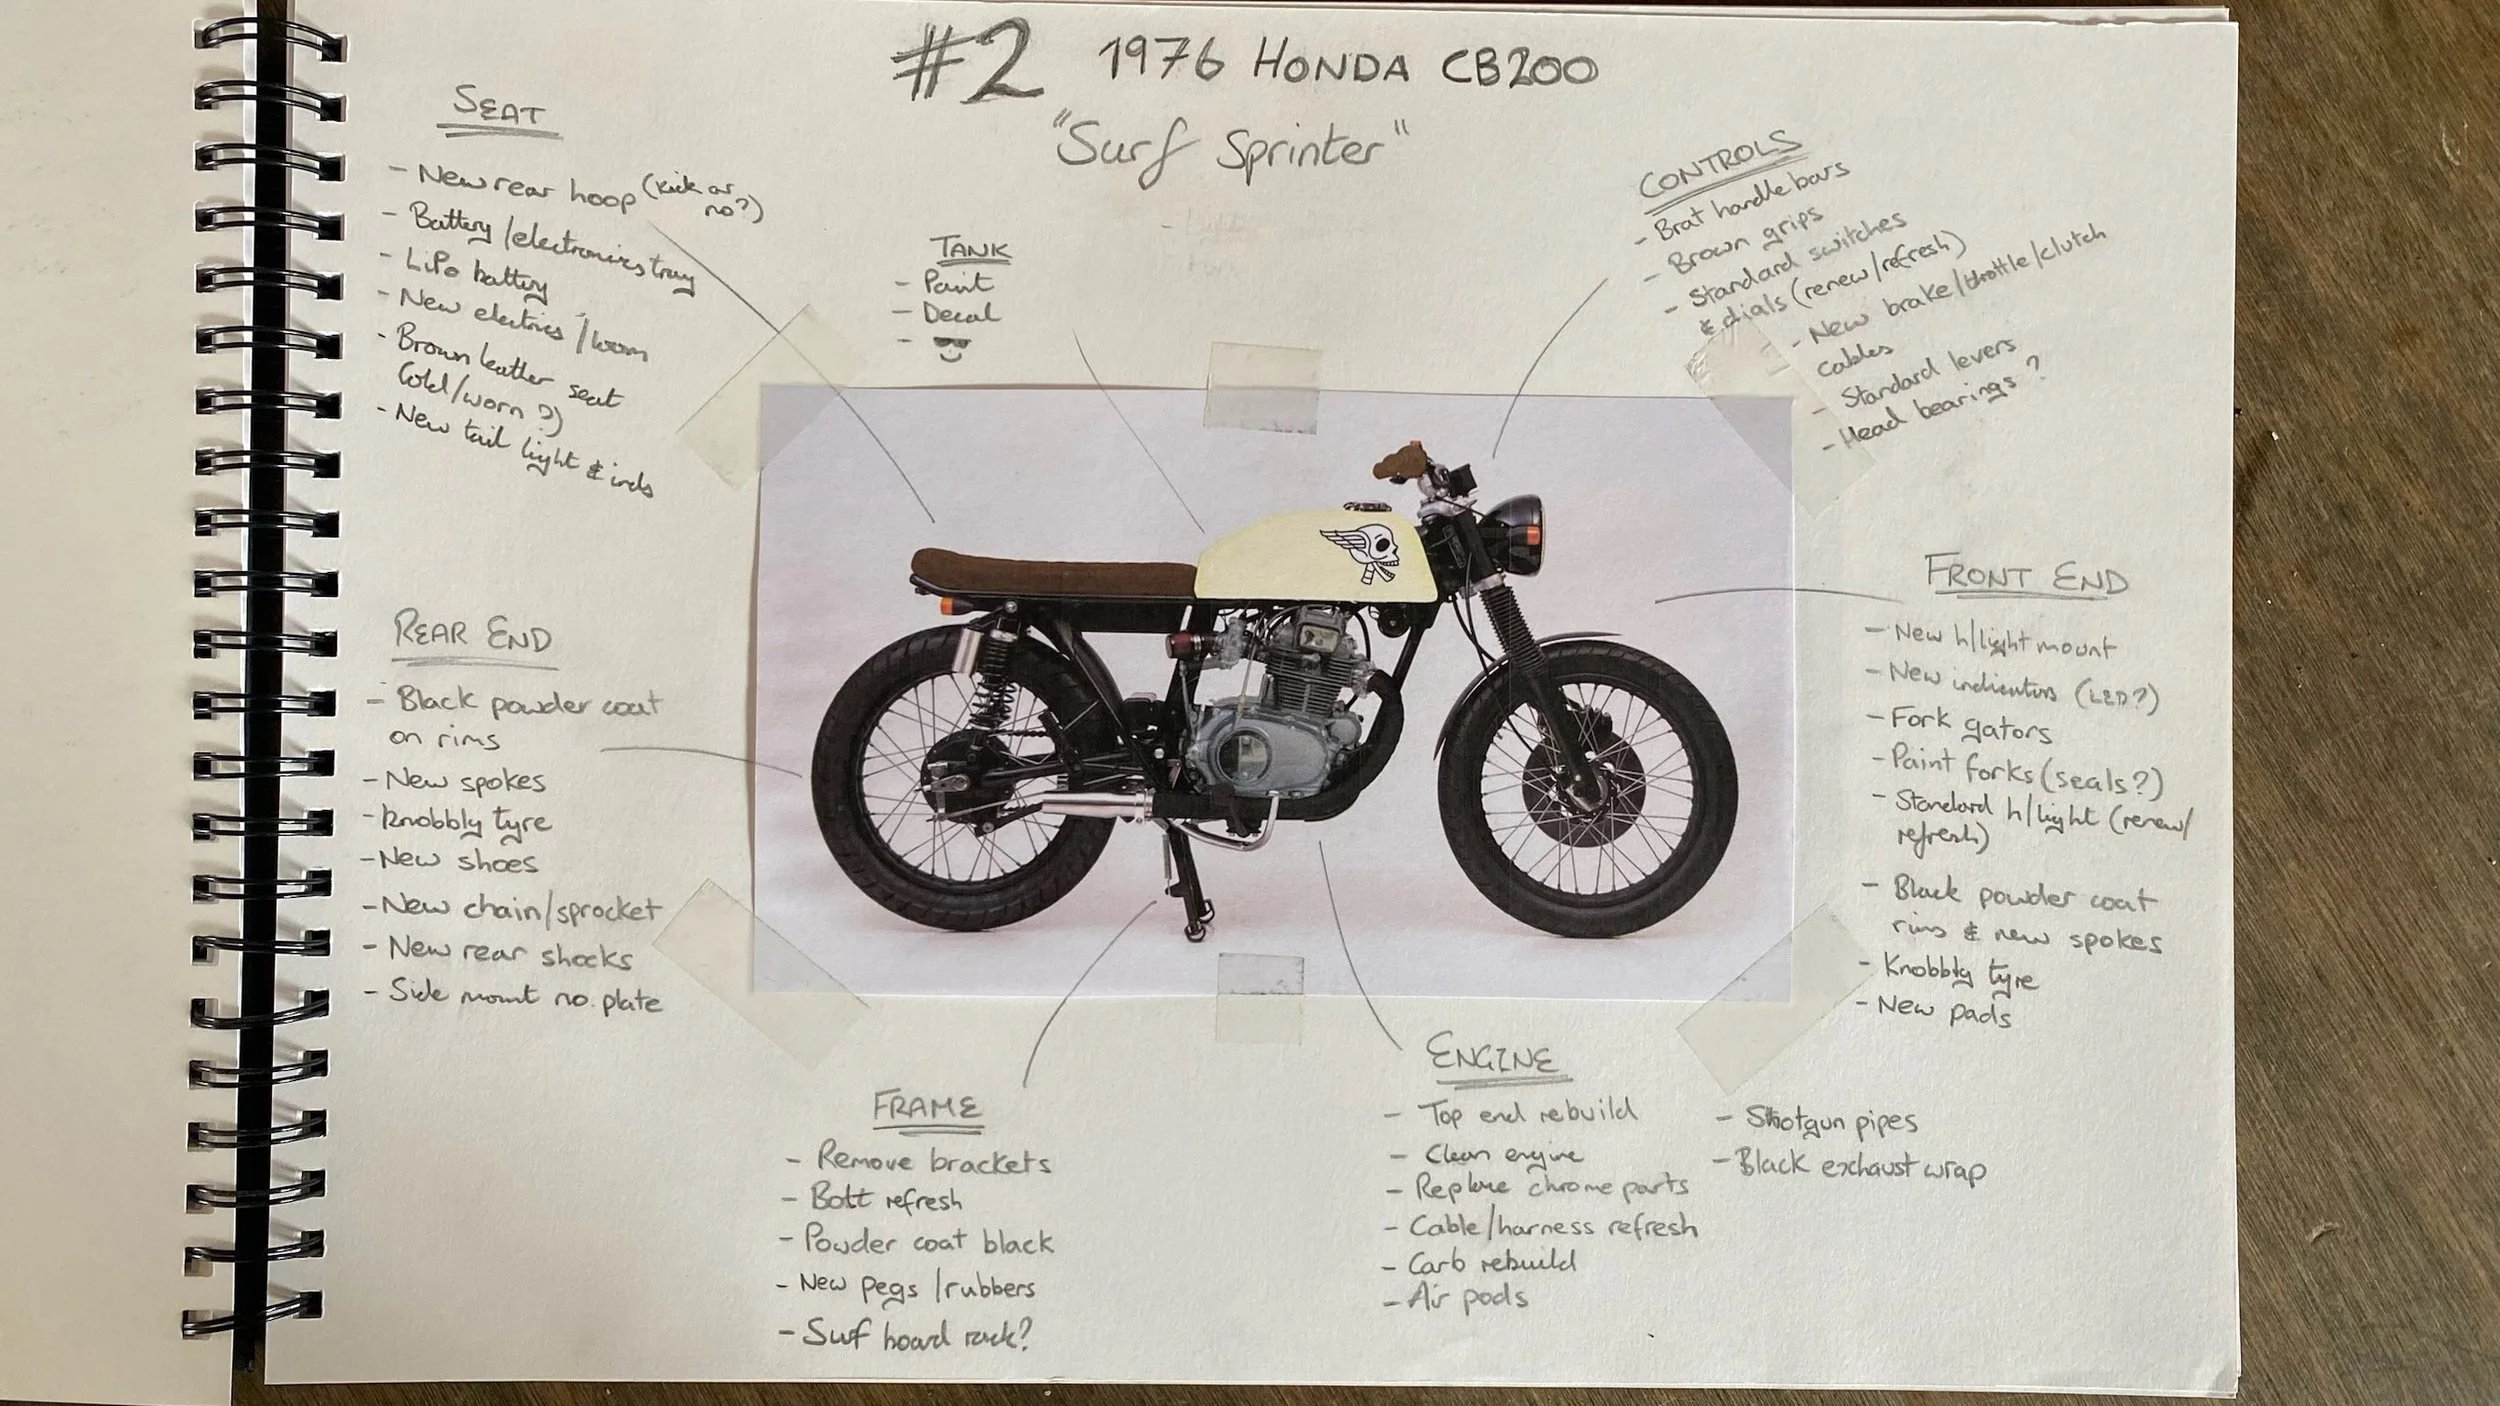 #2 1976 HONDA CB200
"Surf Sprinter"
SEAT
- New rear hoop (kick or
no?)
- Battery/electronics tray
- LiPo battery
- New electrics/loom
- Brown leather seat
(old/worn?)
- New tail light & inds
TANK
- Paint
- Decal
-
CONTROLS
- Brat handlebars
- Brown grips
- Standard switches
& dials (renew/refresh)
- New brake/throttle/clutch
cables
- Standard levers
- Head bearings?
REAR END
- Black powder coat
on rims
- New spokes
- Knobbly tyre
- New shoes
- New chain/sprocket
- New rear shocks
- Side mount no. plate
FRONT END
- New h/light mount
- New indicators (LED?)
- Fork gators
- Paint forks (seals?)
- Standard h/light (renew/
refresh)
- Black powder coat
rims & new spokes
- Knobbly tyre
- New pads
FRAME
- Remove brackets
- Bolt refresh
- Powder coat black
- New pegs/rubbers
- Surf board rack?
ENGINE
- Top end rebuild
- Clean engine
- Replace chrome parts
- Cable/harness refresh
- Carb rebuild
- Air pods
- Shotgun pipes
- Black exhaust wrap